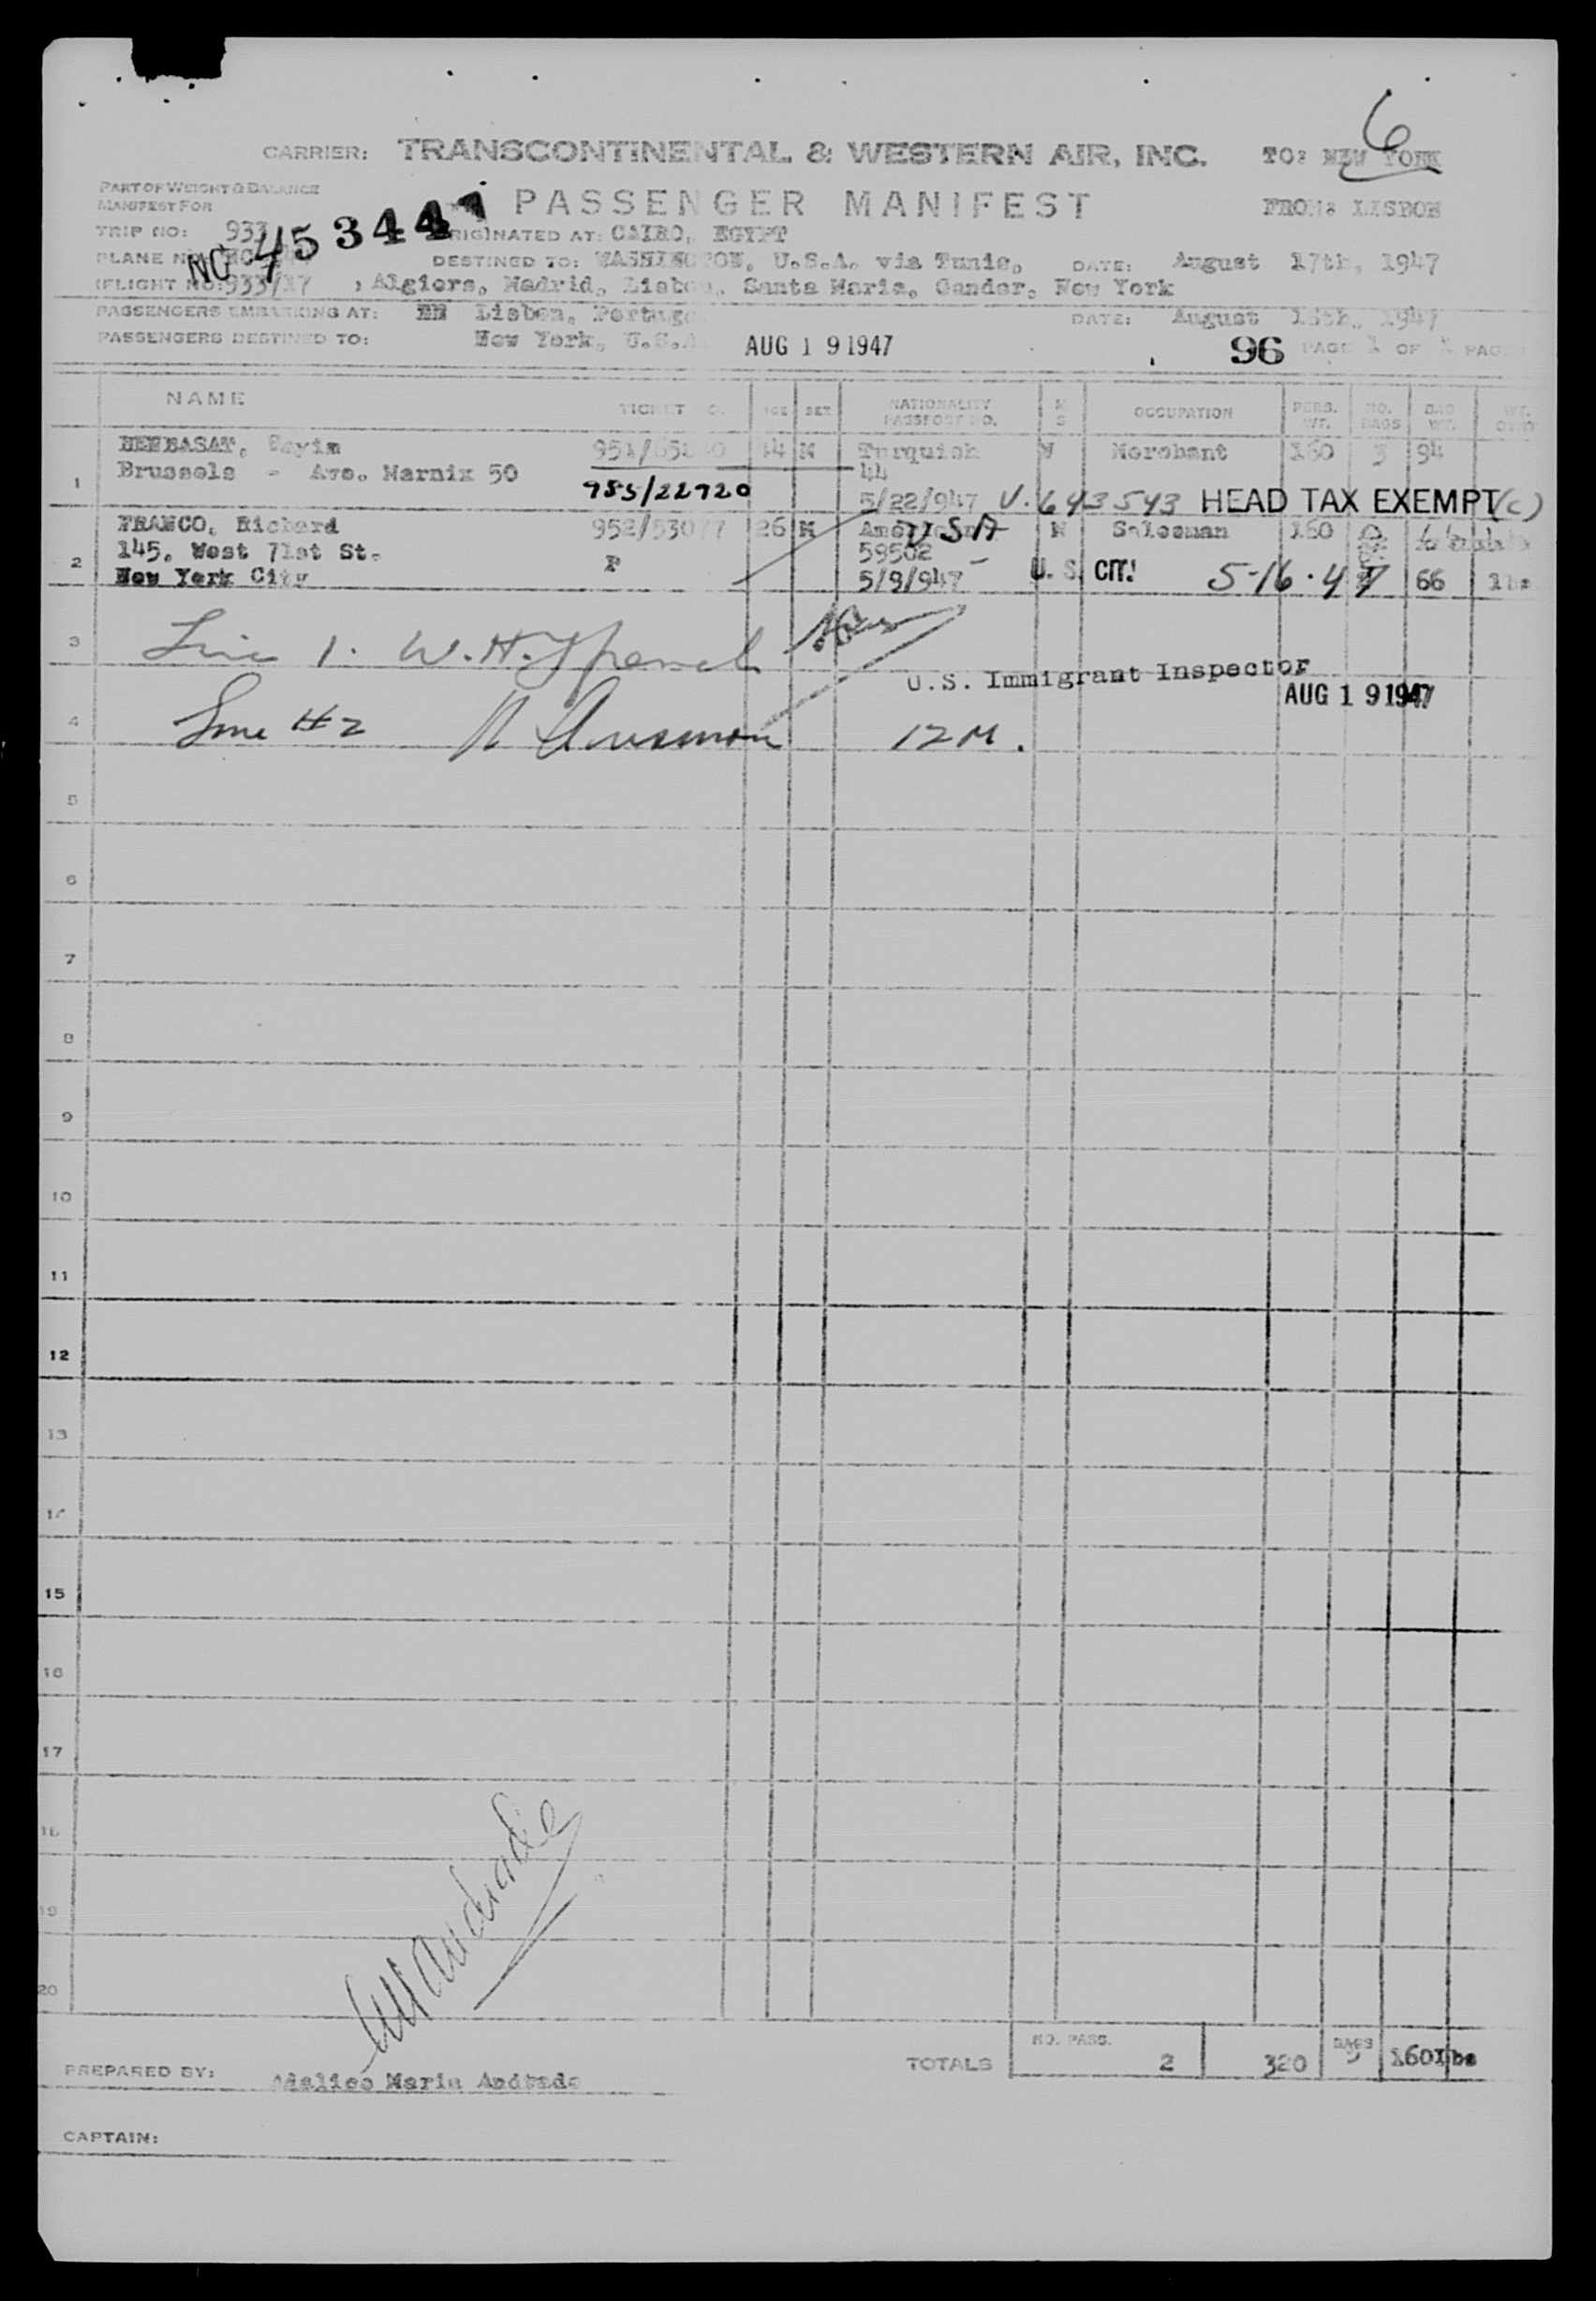 6
CARRIER: TRANSCONTINENTAL & WESTERN AIR, INC. TO: NEW YORK
PART OF WEIGHT & BALANCE
MANIFEST FOR
PASSENGER MANIFEST FROM: LISBON
TRIP NO: 933 ORIGINATED AT: CAIRO, EGYPT
453441
PLANE NO: NC DESTINED TO: WASHINGTON, U.S.A. via Tunis, DATE: August 17th, 1947
FLIGHT NO: 933/17 , Algiers, Madrid, Lisbon, Santa Maria, Gander, New York
PASSENGERS EMBARKING AT: Lisbon, Portugal DATE: August 18th, 1947
PASSENGERS DESTINED TO: New York, U.S.A. AUG 19 1947 96 PAGE 1 OF 1 PAGES
NAME TICKET NO. AGE SEX NATIONALITY PASSPORT NO. M S OCCUPATION PERS. WT. NO. BAGS BAG WT.
1 BENBASAT, Hayim 44 M Turquish Merchant 160 3 94
Brussels - Ave. Marnix 50 44
985/22720 5/22/947 V. 643543 HEAD TAX EXEMPT (c)
2 FRANCO, Richard 952/53077 26 M American USA M Salesman 160
145, West 71st St. P 59502
New York City 5/9/947 U. S. CIT. 5-16-47 66 lbs
3 Line 1. W.H.
U.S. Immigrant Inspector
AUG 19 1947
4 Line #2 12 M.
5
6
7
8
9
10
11
12
13
14
15
16
17
18
19
20
TOTALS NO. PASS. 2 320 BAGS 5 160 lbs
PREPARED BY: Maria Andrade
CAPTAIN: